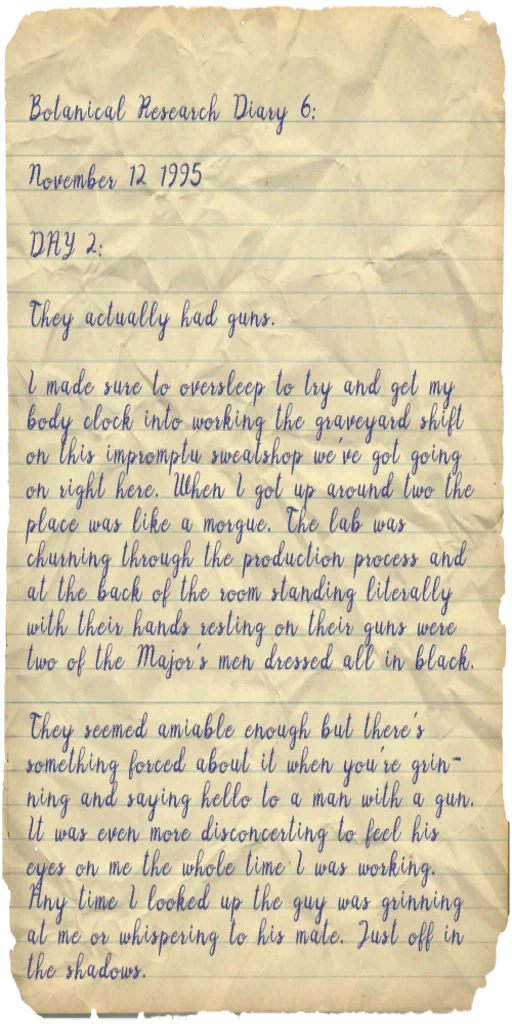 Botanical Research Diary 6:
November 12 1995
DAY 2:
They actually had guns.
I made sure to oversleep to try and get my
body clock into working the graveyard shift
on this impromptu sweatshop we've got going
on right here. When I got up around two the
place was like a morgue. The lab was
churning through the production process and
at the back of the room standing literally
with their hands resting on their guns were
two of the Major's men dressed all in black.
They seemed amiable enough but there's
something forced about it when you're grin-
ning and saying hello to a man with a gun.
It was even more disconcerting to feel his
eyes on me the whole time I was working.
Any time I looked up the guy was grinning
at me or whispering to his mate. Just off in
the shadows.